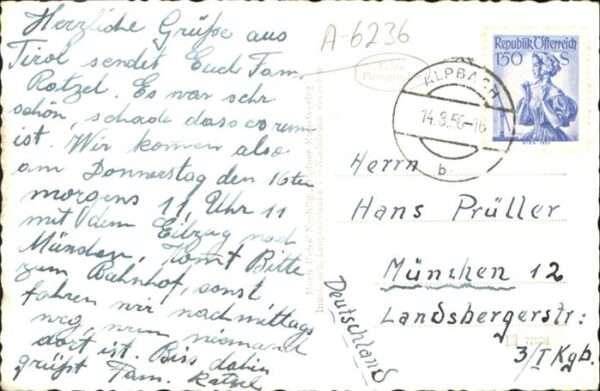 Herzliche Grüße aus
Tirol sendet Euch Fam.
Ratzel. Es war sehr
schön, schade dass es rum
ist. Wir kommen also
am Donnerstag den 16ten
morgens 11 Uhr 11
mit dem Eilzug nach
München, komt Bitte
zum Bahnhof, sonst
fahren wir nachmittags
weg, wenn niemand
dort ist. Biss dahin
grüßt Fam. Ratzel
A-6236
Republik Österreich
1.50 S
ALPBACH
14.8.56-16
b
Herrn
Hans Prüller
München 12
Landsbergerstr:
3/I Kgb.
Deutschland